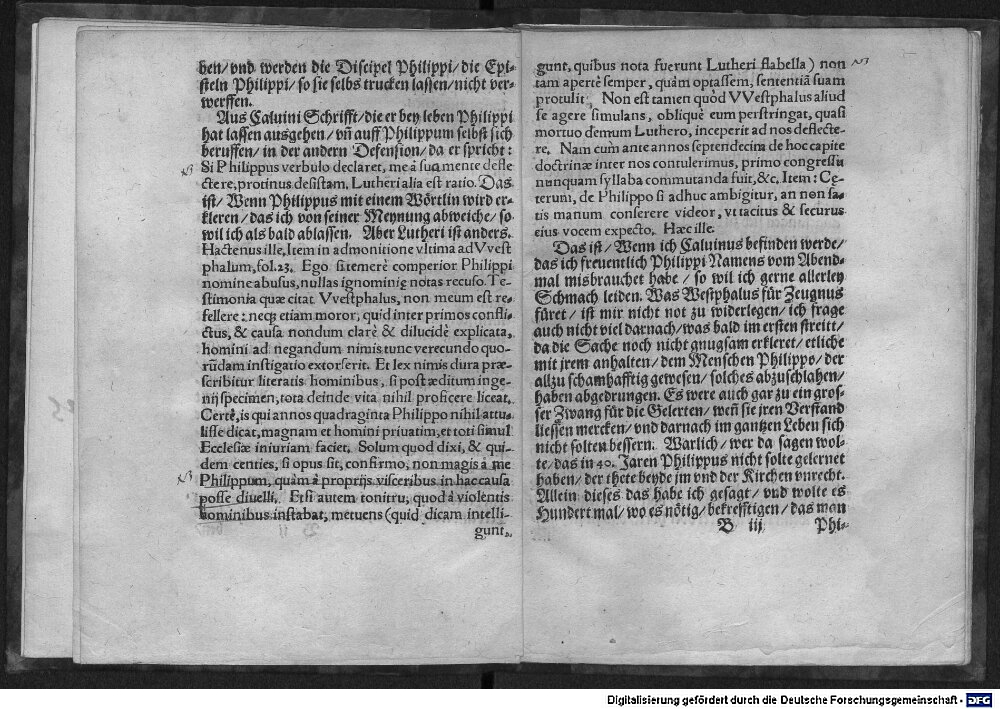 ben/ vnd werden die Discipel Philippi/ die Epi-
steln Philippi/ so sie selbs trucken lassen/ nicht ver-
werffen.
Aus Caluini Schrifft/ die er bey leben Philippi
hat lassen ausgehen/ vñ auff Philippum selbst sich
beruffen/ in der andern Defension/ da er spricht:
Si Philippus verbulo declaret, me à sua mente defle
ctere, protinus desistam. Lutheri alia est ratio. Das
ist/ Wenn Philippus mit einem Wörtlin wird er-
kleren/ das ich von seiner Meynung abweiche/ so
wil ich als bald ablassen. Aber Lutheri ist anders.
Hactenus ille. Item in admonitione vltima ad VVest
phalum, fol. 23. Ego si temerè comperior Philippi
nomine abusus, nullas ignominię notas recuso. Te-
stimonia quæ citat VVestphalus, non meum est re-
fellere: necꝗ etiam moror, quid inter primos confli-
ctus, & causa nondum clarè & dilucidè explicata,
homini ad negandum nimis tunc verecundo quo-
rũdam instigatio extorserit. Et lex nimis dura præ-
scribitur literatis hominibus, si post æditum inge-
nij specimen, tota deinde vita nihil proficere liceat.
Certè, is qui annos quadraginta Philippo nihil attu-
lisse dicat, magnam et homini priuatim, et toti simul
Ecclesiæ iniuriam faciet. Solum quod dixi, & qui-
dem centies, si opus sit, confirmo, non magis à me
Philippum, quàm à proprijs visceribus in hac causa
posse diuelli. Etsi autem tonitru, quod à violentis
hominibus instabat, metuens (quid dicam intelli-
gunt,
gunt, quibus nota fuerunt Lutheri flabella) non
tam apertè semper, quàm optassem, sententiã suam
protulit. Non est tamen quòd VVestphalus aliud
se agere simulans, obliquè eum perstringat, quasi
mortuo demum Luthero, inceperit ad nos deflecte-
re. Nam cum ante annos septendecim de hoc capite
doctrinæ inter nos contulerimus, primo congressu
nunquam syllaba commutanda fuit, &c. Item: Cę-
terum, de Philippo si adhuc ambigitur, an non sa-
tis manum conserere videor, vt tacitus & securus
eius vocem expecto. Hæc ille.
Das ist/ Wenn ich Caluinus befinden werde/
das ich freuentlich Philippi Namens vom Abend-
mal misbrauchet habe/ so wil ich gerne allerley
Schmach leiden. Was Westphalus für Zeugnus
füret/ ist mir nicht not zu widerlegen/ ich frage
auch nicht viel darnach/ was bald im ersten streitt/
da die Sache noch nicht gnugsam erkleret/ etliche
mit jrem anhalten/ dem Menschen Philippo/ der
allzu schamhafftig gewesen/ solches abzuschlahen/
haben abgedrungen. Es were auch gar zu ein gros-
ser Zwang für die Gelerten/ weñ sie jren Verstand
liessen mercken/ vnd darnach im gantzen Leben sich
nicht solten bessern. Warlich/ wer da sagen wol-
te/ das in 40. Jaren Philippus nicht solte gelernet
haben/ der thete beyde jm vnd der Kirchen vnrecht.
Allein dieses das habe ich gesagt/ vnd wolte es
Hundert mal/ wo es nötig/ bekrefftigen/ das man
B iij Phi-
Digitalisierung gefördert durch die Deutsche Forschungsgemeinschaft - DFG